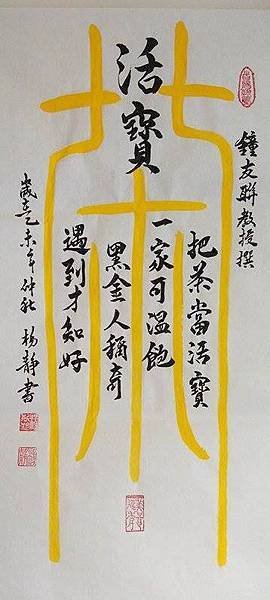 活寶
鐘友聯教授撰
把茶當活寶
一家可溫飽
黑金人稱奇
遇到才知好
歲在乙未年仲秋 楊靜書